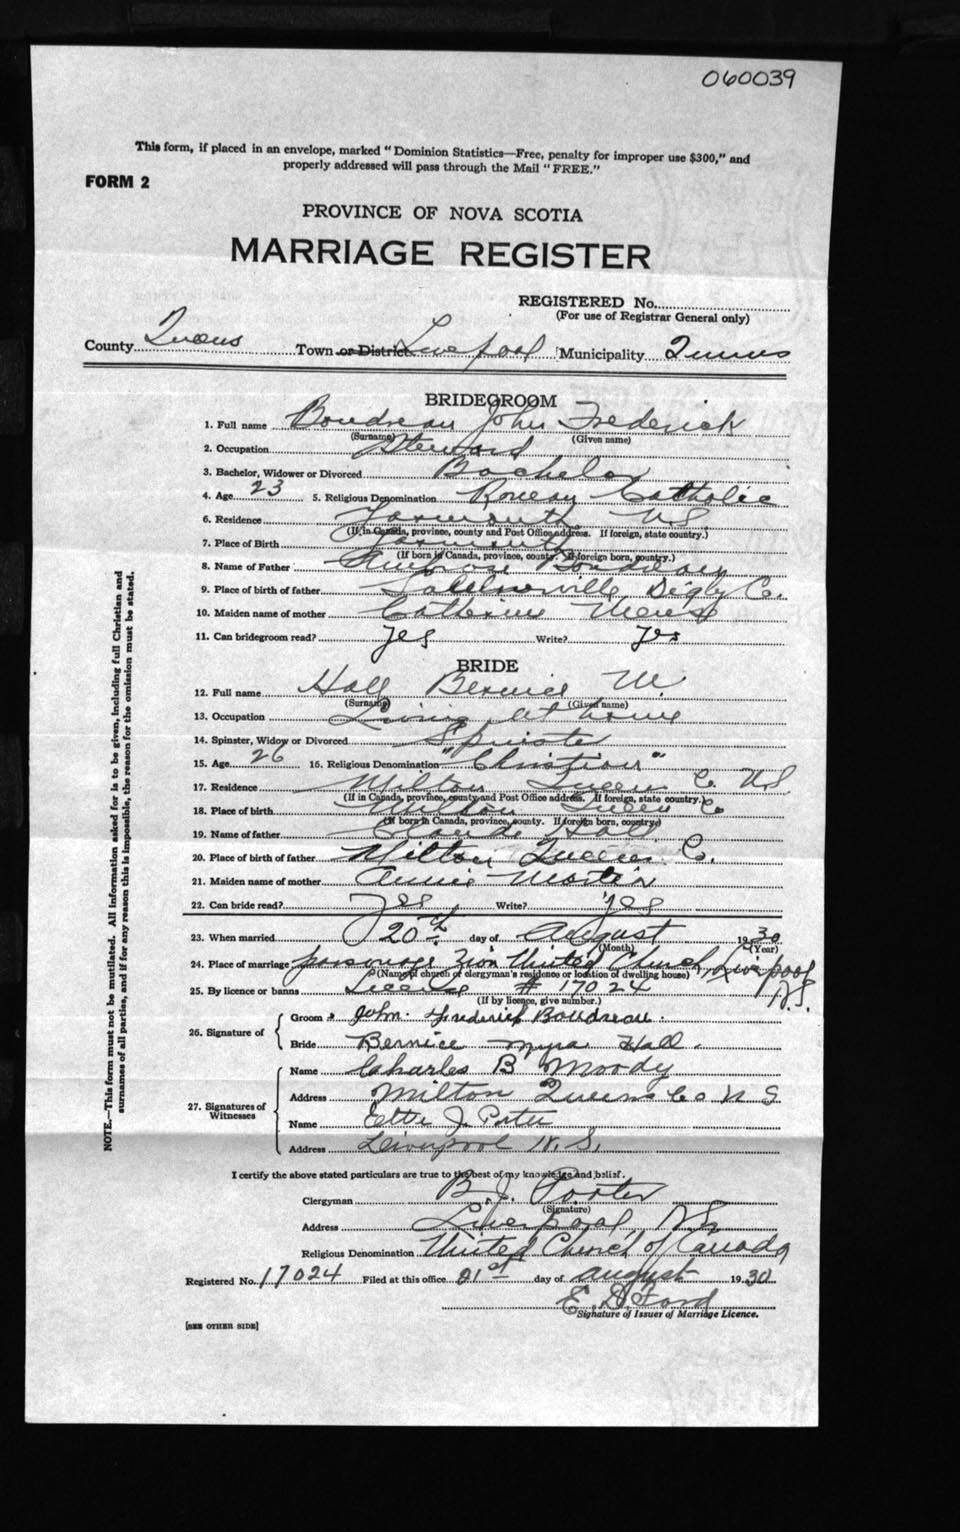 060039
This form, if placed in an envelope, marked "Dominion Statistics—Free, penalty for improper use $300," and
properly addressed will pass through the Mail "FREE."
FORM 2
PROVINCE OF NOVA SCOTIA
MARRIAGE REGISTER
REGISTERED No.
(For use of Registrar General only)
County Queens Town or District Liverpool Municipality Queens
BRIDEGROOM
1. Full name Boudreau John Frederick
(Surname) (Given name)
2. Occupation Steward
3. Bachelor, Widower or Divorced Bachelor
4. Age 23 5. Religious Denomination Roman Catholic
6. Residence Yarmouth N.S.
(If in Canada, province, county and Post Office address. If foreign, state country.)
7. Place of Birth Yarmouth
(If born in Canada, province, county. If foreign born, country.)
8. Name of Father Ambrose Boudreau
9. Place of birth of father Digby Co.
10. Maiden name of mother Catherine
11. Can bridegroom read? Yes Write? Yes
BRIDE
12. Full name Hall Bernice M.
(Surname) (Given name)
13. Occupation Living at home
14. Spinster, Widow or Divorced Spinster
15. Age 26 16. Religious Denomination "Christian"
17. Residence Milton Queens Co. N.S.
(If in Canada, province, county and Post Office address. If foreign, state country.)
18. Place of birth Milton Queens Co
(If born in Canada, province, county. If foreign born, country.)
19. Name of father Claude Hall
20. Place of birth of father Milton Queens Co.
21. Maiden name of mother Annie Martin
22. Can bride read? Yes Write? Yes
23. When married 20th day of August 1930
(Month) (Year)
24. Place of marriage parsonage Zion United Church, Liverpool N.S.
(Name of church or clergyman's residence or location of dwelling house)
25. By licence or banns License # 17024
(If by licence, give number.)
26. Signature of
Groom John Frederick Boudreau.
Bride Bernice Myra Hall.
27. Signatures of Witnesses
Name Charles B Moody
Address Milton Queens Co N S
Name J. Porter
Address Liverpool N. S.
I certify the above stated particulars are true to the best of my knowledge and belief.
Clergyman B. J. Porter
(Signature)
Address Liverpool, N.S.
Religious Denomination United Church of Canada
Registered No. 17024 Filed at this office 21st day of August 1930
E. D. Ford
Signature of Issuer of Marriage Licence.
[SEE OTHER SIDE]
NOTE.—This form must not be mutilated. All information asked for is to be given, including full Christian and
surnames of all parties, and if for any reason this is impossible, the reason for the omission must be stated.